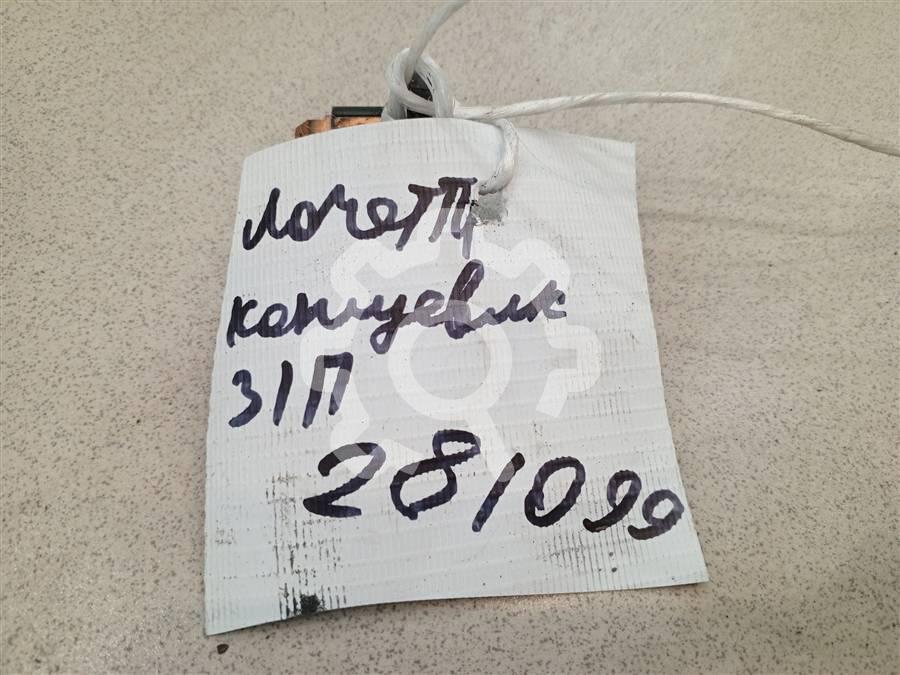 Лачетти
концевик
З/П
28/099